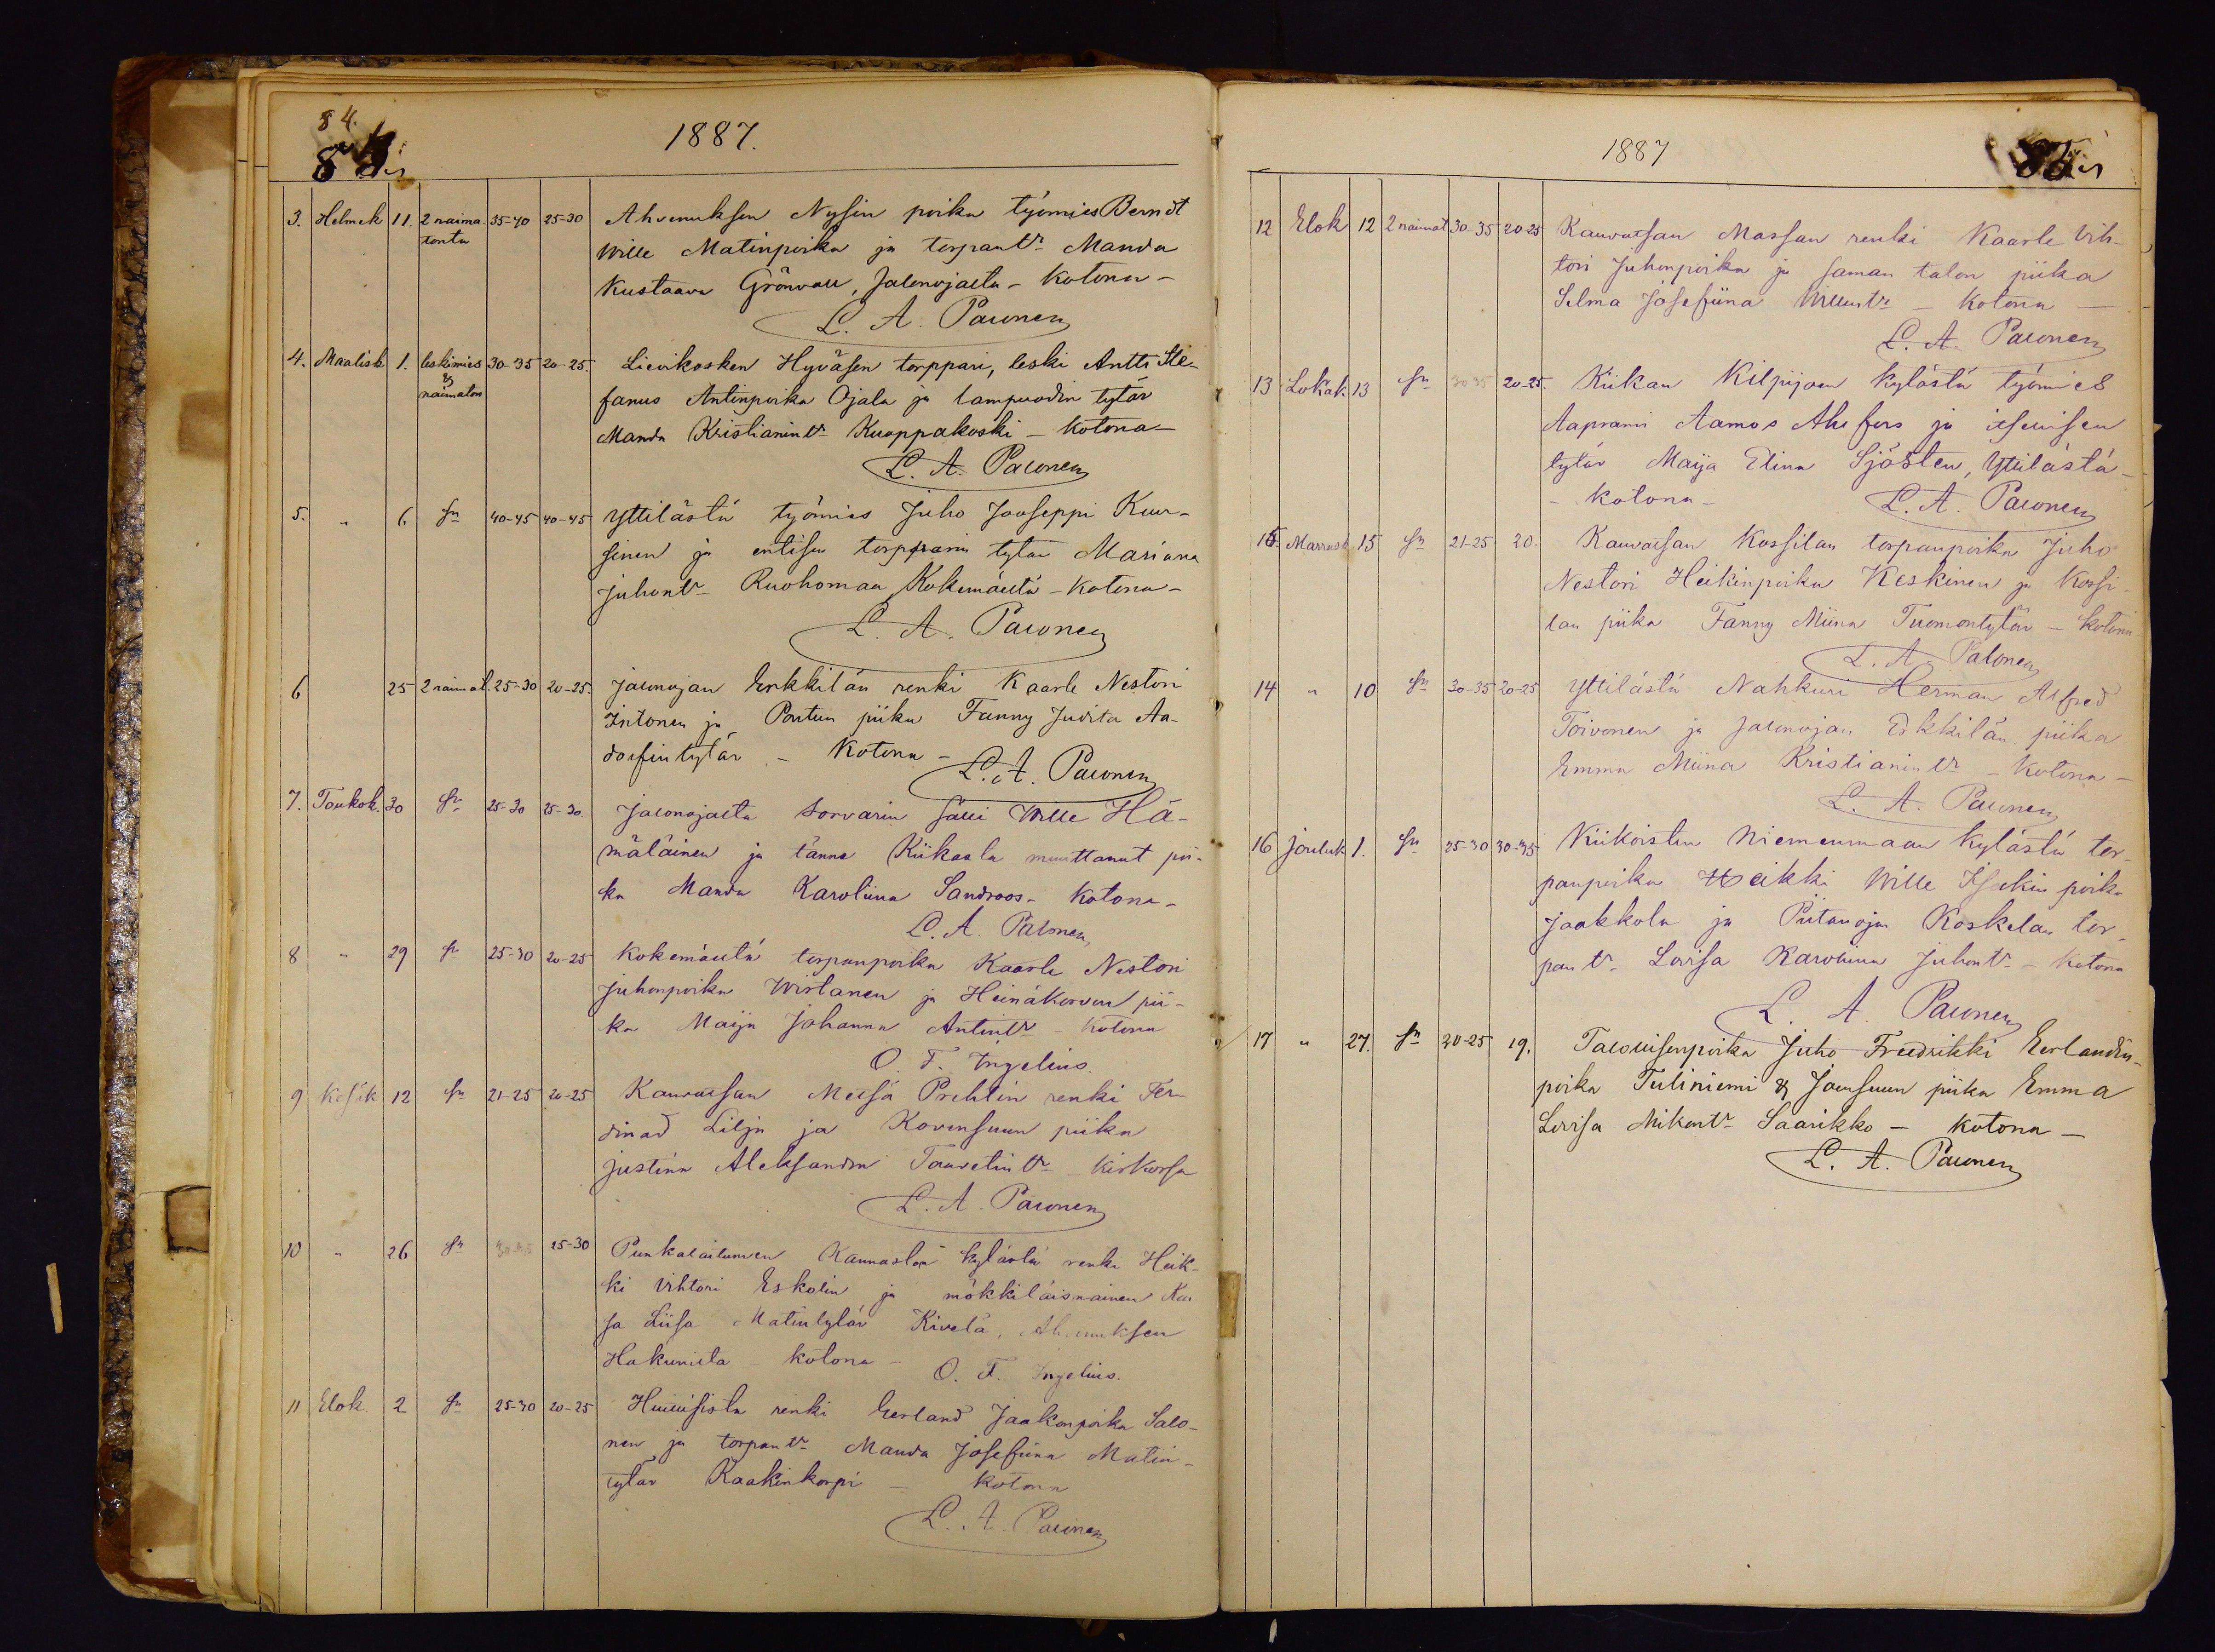 84.
1887.
3. Helmek 11. 2 naima- 35-40 25-30 Ahvenuksen Nysin poika työmies Berndt
tonta Wille Matinpoika ja torpantr Manda
Kustaava Grönvall, Jalonojalta - Kotona -
L. A. Palonen
4. Maalisk 1. leskimies 30-35 20-25. Lievikosken Hyväsen torppari, leski Antti Ste-
& naimaton fanus Antinpoika Ojala ja lampuodin tytär
Manda Kristianintr Kuoppakoski - Kotona -
L. A. Palonen
5. " 6 Sn 40-45 40-45 Yttilästä työmies Juho Jooseppi Kuu-
sinen ja entisen torpparin tytär Mariana
Juhontr Ruohomaa, Kokemäeltä - Kotona -
L. A. Palonen
6 25 2 naimat. 25-30 20-25. Jalonojan Erkkilän renki Kaarle Nestori
Intonen ja Pontun piika Fanny Judita Aa-
dolfintytär - Kotona -
L. A. Palonen
7. Toukok. 30 Sn 25-30 25-30. Jalonojalta Sorvarin sälli Wille Hä-
mäläinen ja tänne Kiikasta muuttanut pii-
ka Manda Karoliina Sandroos - Kotona -
L. A. Palonen
8 " 29 Sn 25-30 20-25 Kokemäeltä torpanpoika Kaarle Nestori
Juhonpoika Wirtanen ja Heinäkorven pii-
ka Maija Johanna Antintr - Kotona
O. F. Ingelius.
9 Kesäk 12 Sn 21-25 20-25 Kauvatsan Metsä Prehtin renki Fer-
dinad Lilja ja Kovensuun piika
Justina Aleksandra Taavetintr Kirkossa
L. A. Palonen
10 " 26 Sn 25-30 Punkalaitumen Kannaston kylästä renki Heik-
ki Vihtori Eskolin ja mökkiläisnainen Kai
sa Liisa Matintytär Kivelä, Ahvenuksen
Hakunilta - kotona -
O. F. Ingelius.
11 Elok. 2 Sn 25-30 20-25 renki Eerland Jaakonpoika Salo-
nen ja torpantr Manda Josefiina Matin-
tytär Raakinkorpi - Kotona
L. A. Palonen
1887
85
12 Elok 12 2 naimat 30-35 20-25 Kauvatsan Massan renki Kaarle Vih-
tori Juhonpoika ja saman talon piika
Selma Josefiina Willentr - Kotona -
L. A. Palonen
13 Lokak. 13 Sn 30-35 20-25. Kiikan Kilpijoen kylästä työmies
Aaprami Aamos Ahlfors ja itsellisen
tytär Maija Elina Sjösten, Yttilästä -
- Kotona -
L. A. Palonen
15 Marrask 15 Sn 21-25 20. Kauvatsan Kossilan torpanpoika Juho
Nestori Heikinpoika Keskinen ja Kossi-
lan piika Fanny Miina Tuomontytär - Kotona
L. A. Palonen
14 " 10 Sn 30-35 20-25 Yttilästä Nahkuri Herman Alfred
Toivonen ja Jalonojan Erkkilän piika
Emma Miina Kristianintr - Kotona -
L. A. Palonen
16 Jouluk 1. Sn 25-30 30-35 Kiikoisten Niemenmaan kylästä tor-
panpoika Heikki Wille Isakin poika
Jaakkola ja Piitanojan Koskelan tor-
pan tr. Lovisa Karoliina Juhontr - Kotona
L. A. Palonen
17 " 27. Sn 20-25 19. Talollisenpoika Juho Freedrikki Eerlandin-
poika Tuliniemi & Jaunsuun piika Emma
Lovisa Mikontr Saarikko - Kotona -
L. A. Palonen